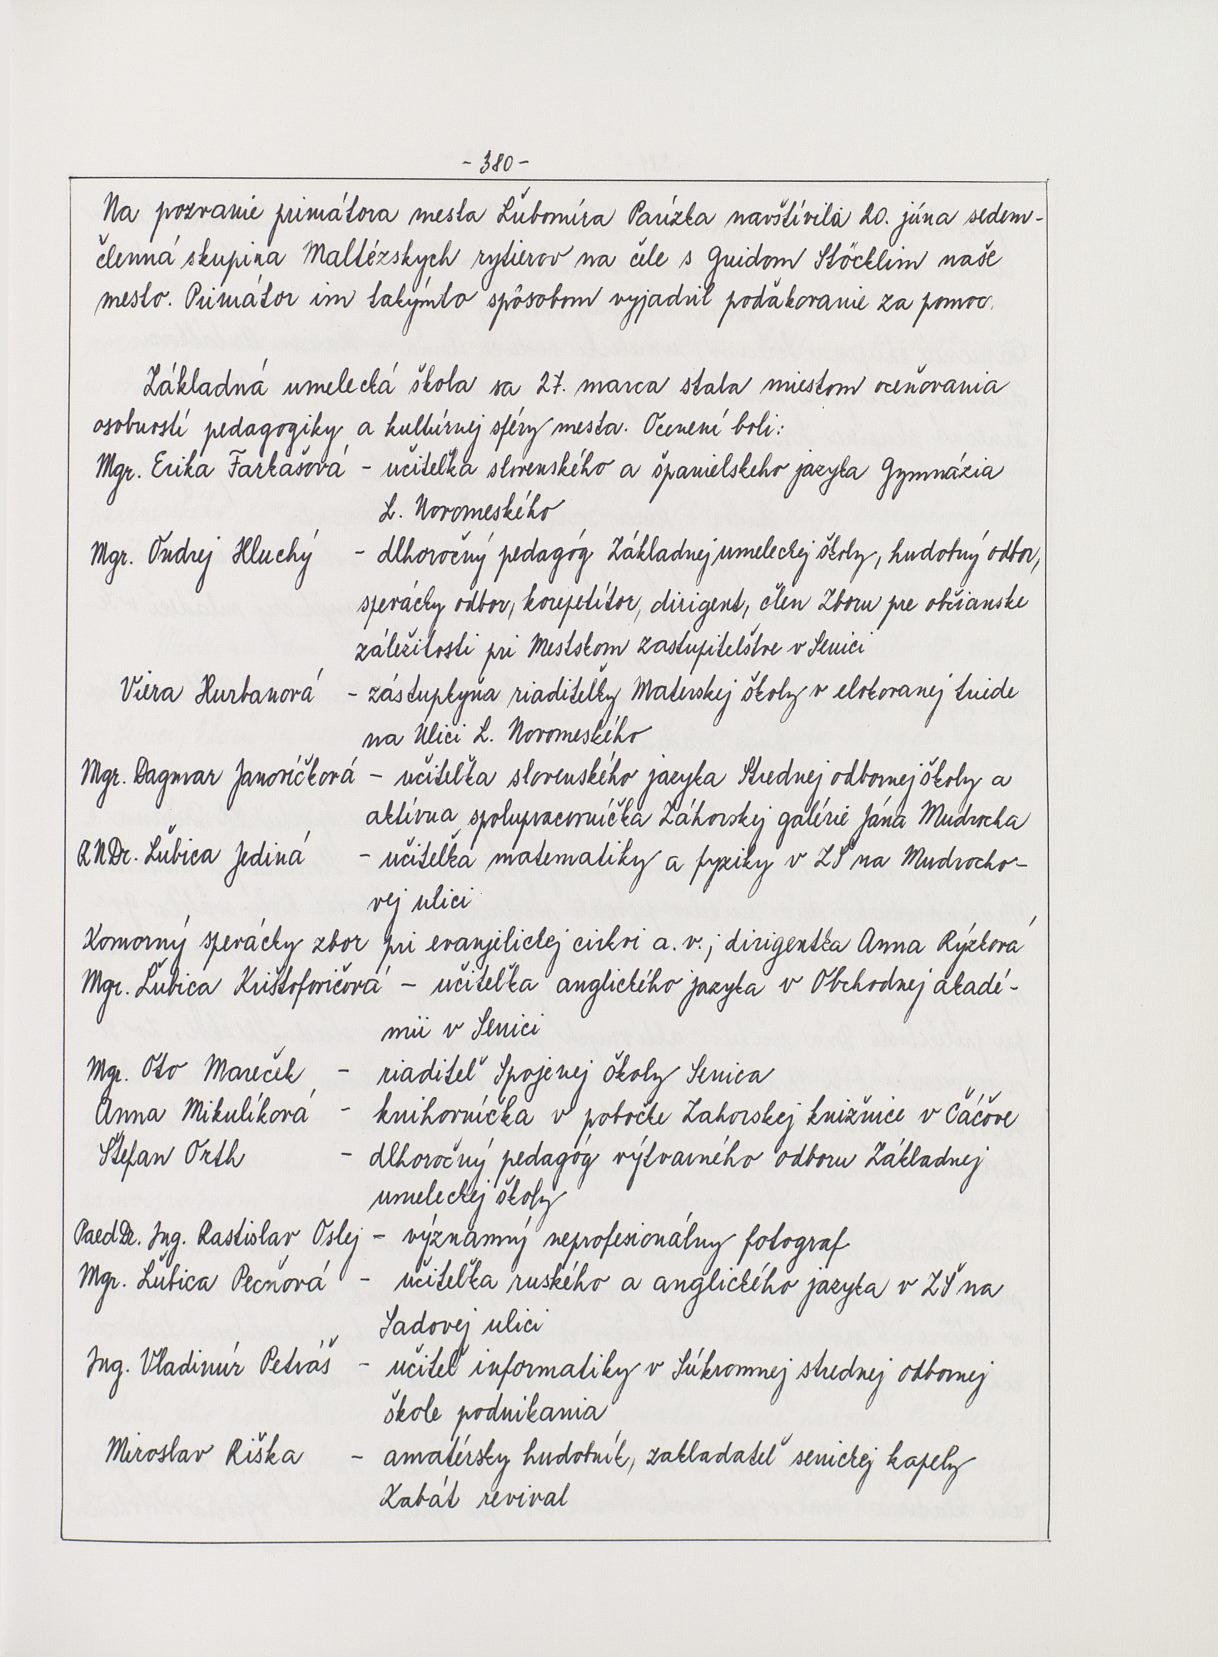 - 380 -
Na pozvanie primátora mesta Ľubomíra Parízka navštívila 20. júna sedem-
členná skupina Maltézskych rytierov na čele s Guidom Stöcklim naše
mesto. Primátor im takýmto spôsobom vyjadril poďakovanie za pomoc.
Základná umelecká škola sa 27. marca stala miestom oceňovania
osobností pedagogiky a kultúrnej sféry mesta. Ocenení boli:
Mgr. Erika Farkašová - učiteľka slovenského a španielskeho jazyka Gymnázia
L. Novomeského
Mgr. Ondrej Hluchý - dlhoročný pedagóg Základnej umeleckej školy, hudobný odbor,
spevácky odbor, korepetítor, dirigent, člen Zboru pre občianske
záležitosti pri Mestskom zastupiteľstve v Senici
Viera Hurbanová - zástupkyňa riaditeľky Materskej školy v elokovanej triede
na Ulici L. Novomeského
Mgr. Dagmar Janovíčková - učiteľka slovenského jazyka Strednej odbornej školy a
aktívna spolupracovníčka Záhorskej galérie Jána Mudrocha
RNDr. Ľubica Jediná - učiteľka matematiky a fyziky v ZŠ na Mudrocho-
vej ulici
Komorný spevácky zbor pri evanjelickej cirkvi a. v.; dirigentka Anna Rýzková
Mgr. Ľubica Krištofovičová - učiteľka anglického jazyka v Obchodnej akadé-
mii v Senici
Mgr. Oto Mareček - riaditeľ Spojenej školy Senica
Anna Mikulíková - knihovníčka v pobočke Záhorskej knižnice v Čáčove
Štefan Orth - dlhoročný pedagóg výtvarného odboru Základnej
umeleckej školy
PaedDr. Ing. Rastislav Oslej - významný neprofesionálny fotograf
Mgr. Ľubica Pecňová - učiteľka ruského a anglického jazyka v ZŠ na
Sadovej ulici
Ing. Vladimír Petráš - učiteľ informatiky v Súkromnej strednej odbornej
škole podnikania
Miroslav Riška - amatérsky hudobník, zakladateľ senickej kapely
Kabát revival